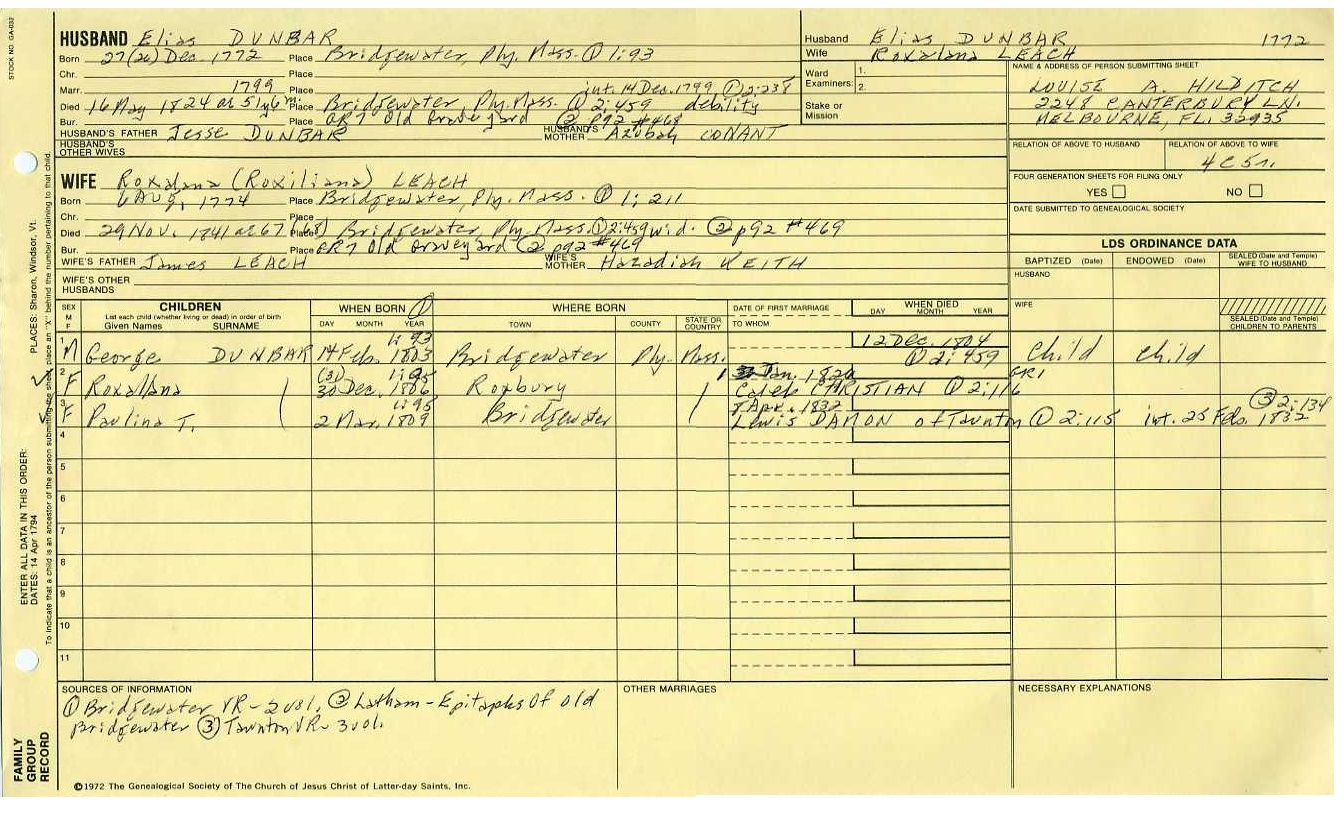 STOCK NO. GA-032
HUSBAND Elias DUNBAR
Born 27 (26) Dec. 1772 Place Bridgewater, Ply. Mass. ① 1:93
Chr. Place
Marr. 1799 Place int. 14 Dec. 1799 ① 2:238
Died 16 May 1824 at 51y6m Place Bridgewater, Ply. Mass. ① 2:459 debility
Bur. Place GR7 Old Graveyard ② p92 #468
HUSBAND'S FATHER Jesse DUNBAR HUSBAND'S MOTHER Azubah CONANT
HUSBAND'S OTHER WIVES
Husband Elias DUNBAR 1772
Wife Roxalana LEACH
Ward Examiners: 1.
2.
Stake or Mission
NAME & ADDRESS OF PERSON SUBMITTING SHEET
LOUISE A. HILDITCH
2248 CANTERBURY LN.
MELBOURNE, FL. 32935
RELATION OF ABOVE TO HUSBAND RELATION OF ABOVE TO WIFE
4C5r.
FOUR GENERATION SHEETS FOR FILING ONLY
YES NO
DATE SUBMITTED TO GENEALOGICAL SOCIETY
WIFE Roxalana (Roxiliana) LEACH
Born 6 Aug. 1774 Place Bridgewater, Ply. Mass. ① 1:211
Chr. Place
Died 29 Nov. 1841 at 67 (68) Place Bridgewater, Ply. Mass. ① 2:459 wid. ② p92 #469
Bur. Place GR7 Old Graveyard ② p92 #469
WIFE'S FATHER James LEACH WIFE'S MOTHER Hazadiah KEITH
WIFE'S OTHER HUSBANDS
LDS ORDINANCE DATA
BAPTIZED (Date) ENDOWED (Date) SEALED (Date and Temple) WIFE TO HUSBAND
HUSBAND
WIFE
SEALED (Date and Temple) CHILDREN TO PARENTS
SEX M F CHILDREN WHEN BORN ① WHERE BORN DATE OF FIRST MARRIAGE WHEN DIED
List each child (whether living or dead) in order of birth
Given Names SURNAME DAY MONTH YEAR TOWN COUNTY STATE OR COUNTRY TO WHOM DAY MONTH YEAR
1 1:93 12 Dec. 1804
M George DUNBAR 14 Feb. 1803 Bridgewater Ply. Mass. ① 2:459 Child child
2 (31) 1:95 Jan. GR1
F Roxallana 30 Dec. 1806 Roxbury Caleb CHRISTIAN ① 2:116
3 1:95 7 Apr. 1832 ③ 2:134
F Paulina T. 2 Mar. 1809 Bridgewater Lewis DAMON of Taunton ① 2:115 int. 25 Feb. 1832
4
5
6
7
8
9
10
11
SOURCES OF INFORMATION
① Bridgewater VR-2vol. ② Latham-Epitaphs Of old
Bridgewater ③ Taunton VR-3vol.
OTHER MARRIAGES
NECESSARY EXPLANATIONS
©1972 The Genealogical Society of The Church of Jesus Christ of Latter-day Saints, Inc.
FAMILY GROUP RECORD
ENTER ALL DATA IN THIS ORDER:
DATES: 14 Apr 1794
PLACES: Sharon, Windsor, Vt.
To indicate that a child is an ancestor of the person submitting the sheet, place an "X" behind the number pertaining to that child.